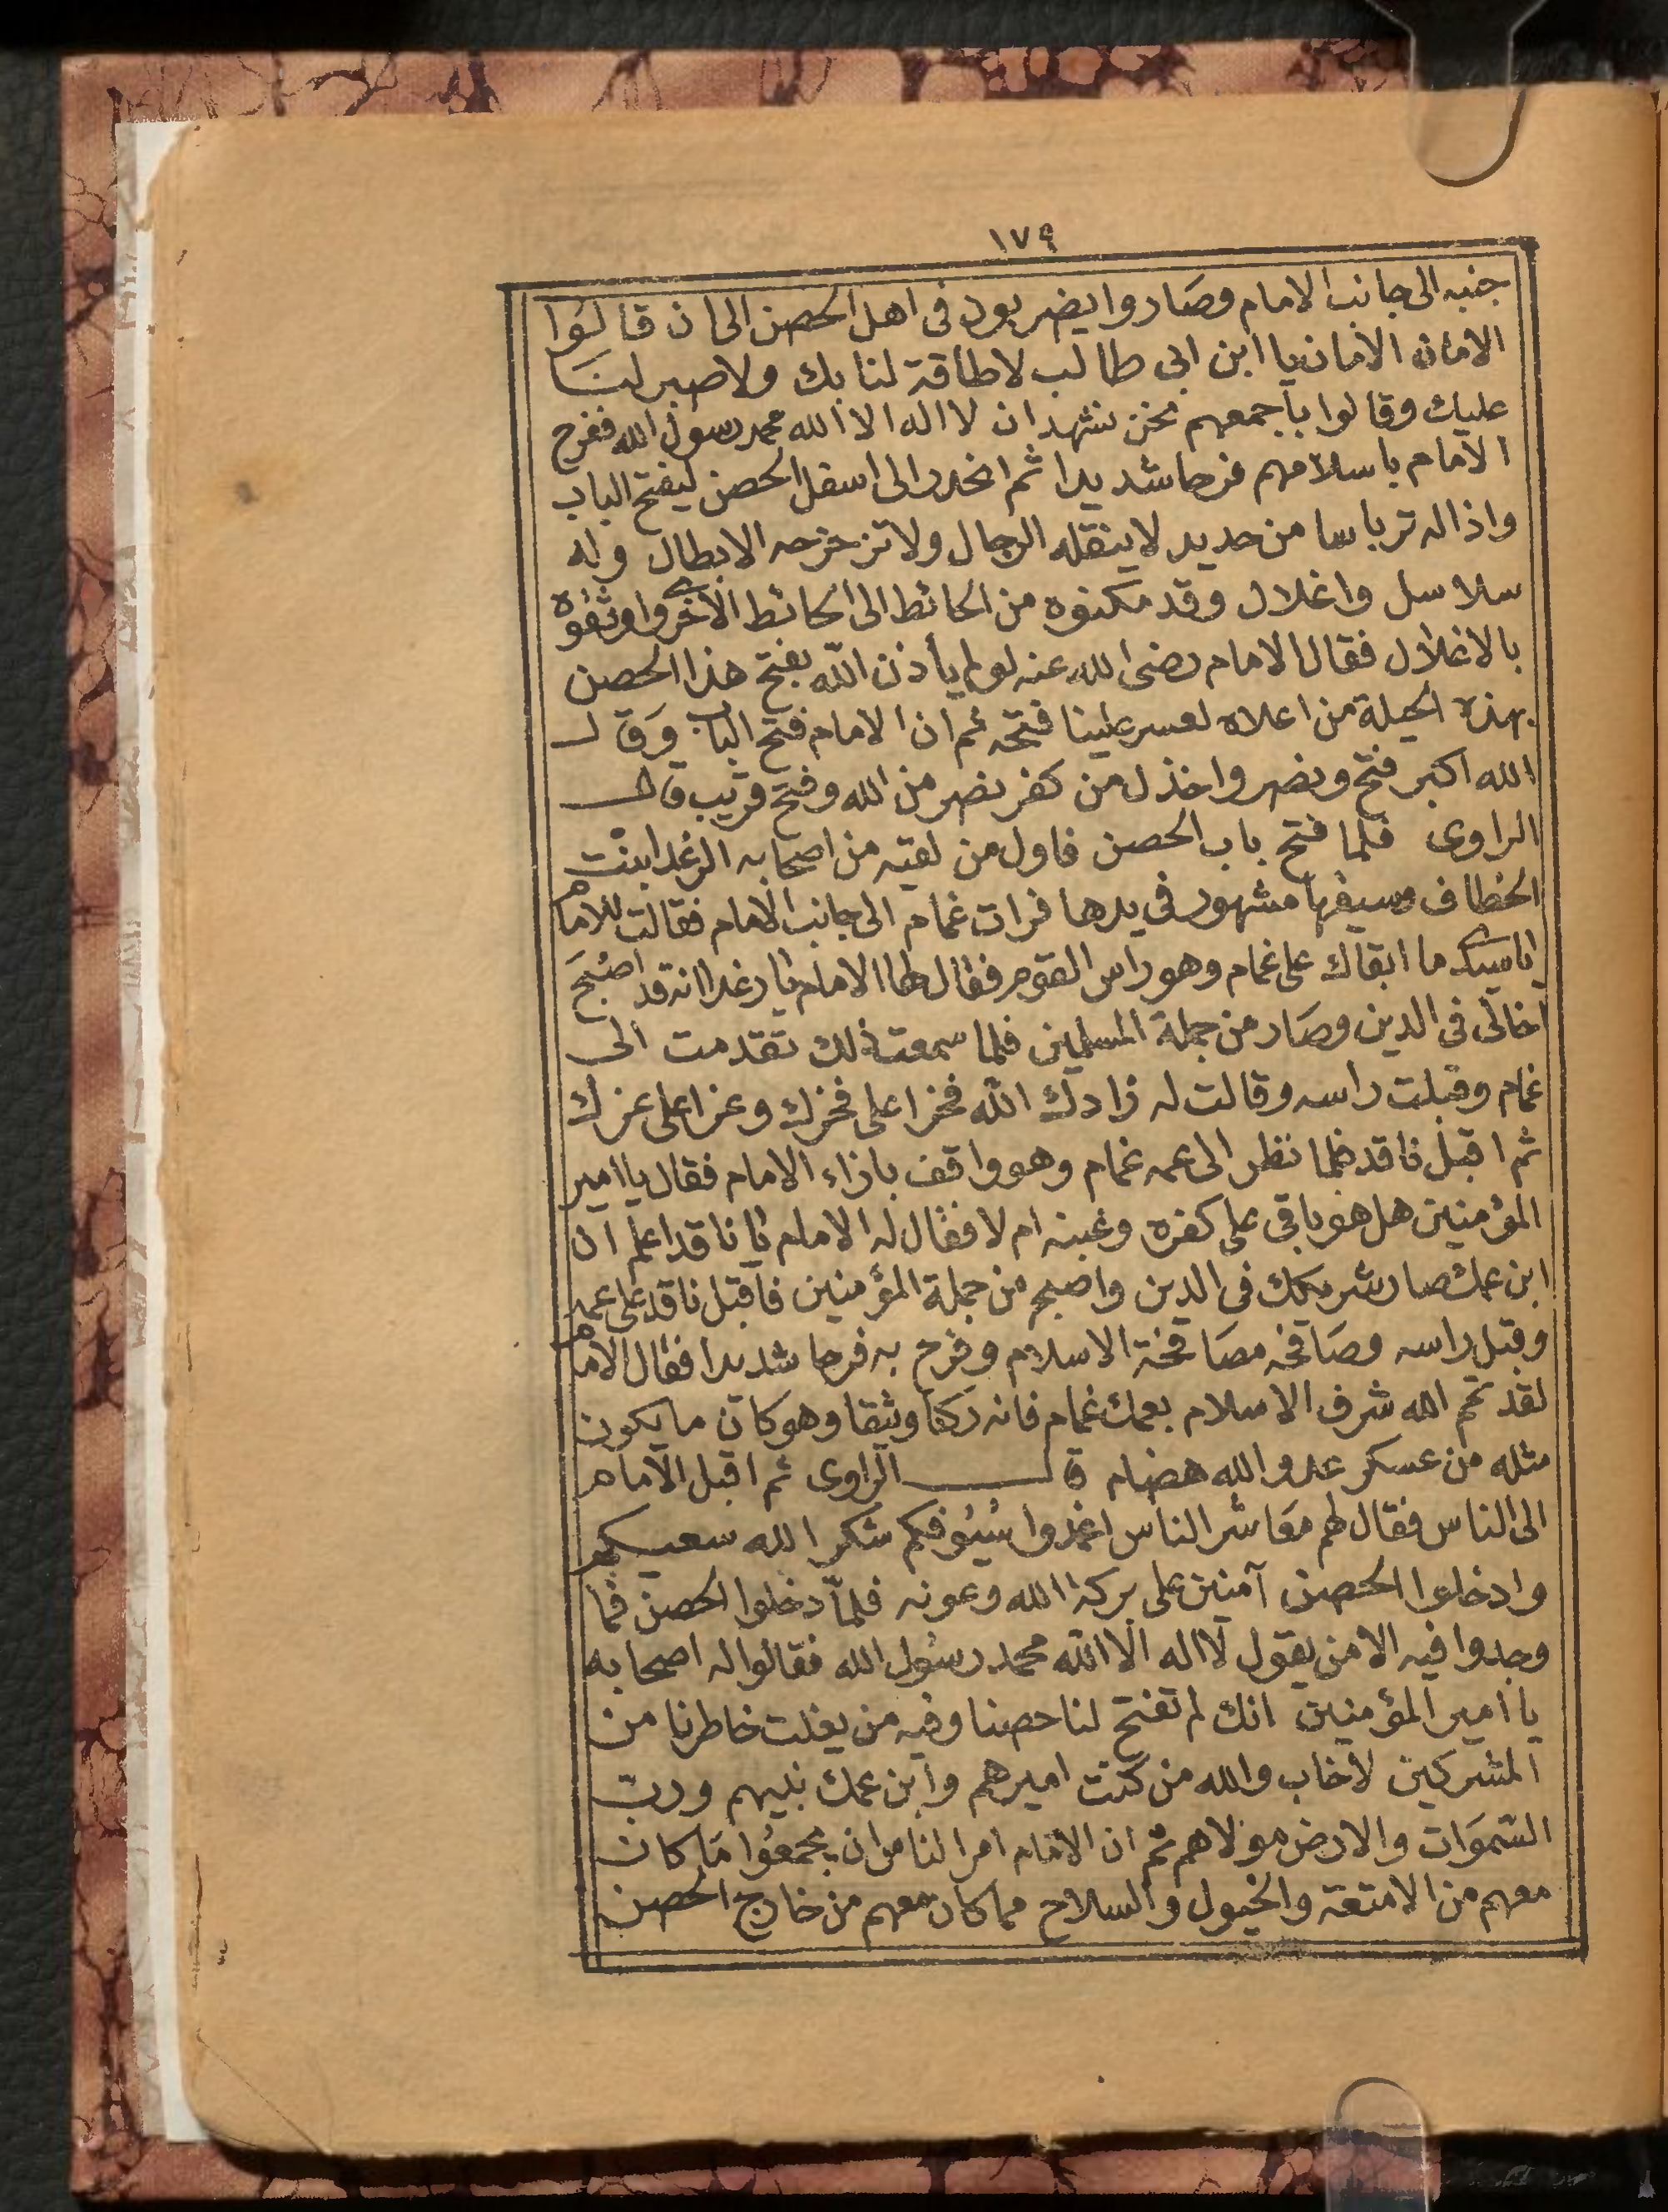 ١٧٩
جنبه الى جانب الامام وصاروا يضربون فى اهل الحصن الى ان قالوا
الامان الامان يا ابن ابى طالب لا طاقة لنا بك ولا صبر لنا
عليك وقالوا باجمعهم نحن نشهد ان لا اله الا الله محمد رسول الله ففرح
الامام باسلامهم فرحا شديدا ثم انحدر الى اسفل الحصن ليفتح الباب
واذا له ترباسا من حديد لا ينقله الرجال ولا تزحزحه الابطال وله
سلاسل واغلال وقد مكنوه من الحائط الى الحائط الأخرى واوثقوه
بالاغلال فقال الامام رضى الله عنه لو لم يأذن الله بفتح هذا الحصن
بهذه الحيلة من اعلاه لعسر علينا فتحه ثم ان الامام فتح الباب وقال
الله اكبر فتح ونصر واخذل من كفر نصر من الله وفتح قريب قال
الراوى فلما فتح باب الحصن فاول من لقيه من اصحابه الرغدا بنت
الخطاف وسيفها مشهور فى يدها فرات غمام الى جانب الامام فقالت للامام
ياسيدى ما ابقاك على غمام وهو راس القوم فقال لها الامام يا رغدا انه قد اصبح
اخا لى فى الدين وصار من جملة المسلمين فلما سمعت ذلك تقدمت الى
غمام وقبلت راسه وقالت له زادك الله فخرا على فخرك وعزا على عزك
ثم اقبل ناقد فلما نظر الى عمه غمام وهو واقف بازاء الامام فقال يا امير
المؤمنين هل هو باقى على كفره وغيه ام لا فقال له الامام يا ناقد اعلم ان
ابن عمك صار شريكك فى الدين واصبح من جملة المؤمنين فاقبل ناقد على عمه
وقبل راسه وصافحه مصافحة الاسلام وفرح به فرحا شديدا فقال الامام
لقد تمم الله شرف الاسلام بعمك غمام فانه ركنا وثيقا وهو كان ما يكون
مثله من عسكر عدو الله هضام قال الراوى ثم اقبل الامام
الى الناس فقال لهم معاشر الناس اغمدوا سُيُوفكم شكر الله سعيكم
وادخلوا الحصن آمنين على بركة الله وعونه فلمّا دخلوا الحصن فما
وجدوا فيه الا من يقول لا اله الا الله محمد رسول الله فقالوا له اصحابه
يا امير المؤمنين انك لم تفتح لنا حصنا وفيه من يفلت خاطرنا من
المشركين لأخاب والله من كنت اميرهم وابن عمك نبيهم ورب
السموات والارض مولاهم ثم ان الامام امر الناس ان يجمعوا ما كان
معهم من الامتعة والخيول والسلاح مما كان معهم من خارج الحصن